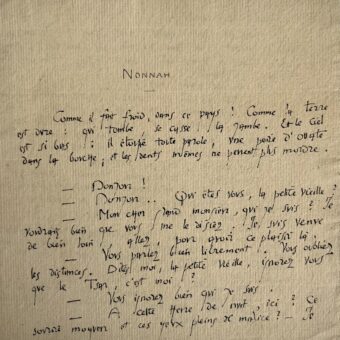 NONNAH
Comme il fait froid, dans ce pays ! Comme la terre
est dure ! qui tombe, se casse la jambe. Et le ciel
est si bas ! il étouffe toute parole, une poire d'ouate
dans la bouche, et les dents mêmes ne peuvent plus mordre.
— Bonjour !
— Bonjour... Qui êtes vous, la petite vieille ?
— Mon cher grand monsieur, qui je suis ? Je
voudrais bien que vous me le disiez. Je suis venue
de bien loin, allez, pour avoir ce plaisir là.
— Vous parlez bien librement. Vous oubliez
les distances. Dites moi, la petite vieille, ignorez vous
que le Tsar, c'est moi ?
— Vous ignorez bien qui je suis.
— A cette heure de nuit, ici ? Ce
sourire moqueur et ces yeux pleins de malice ? — Je